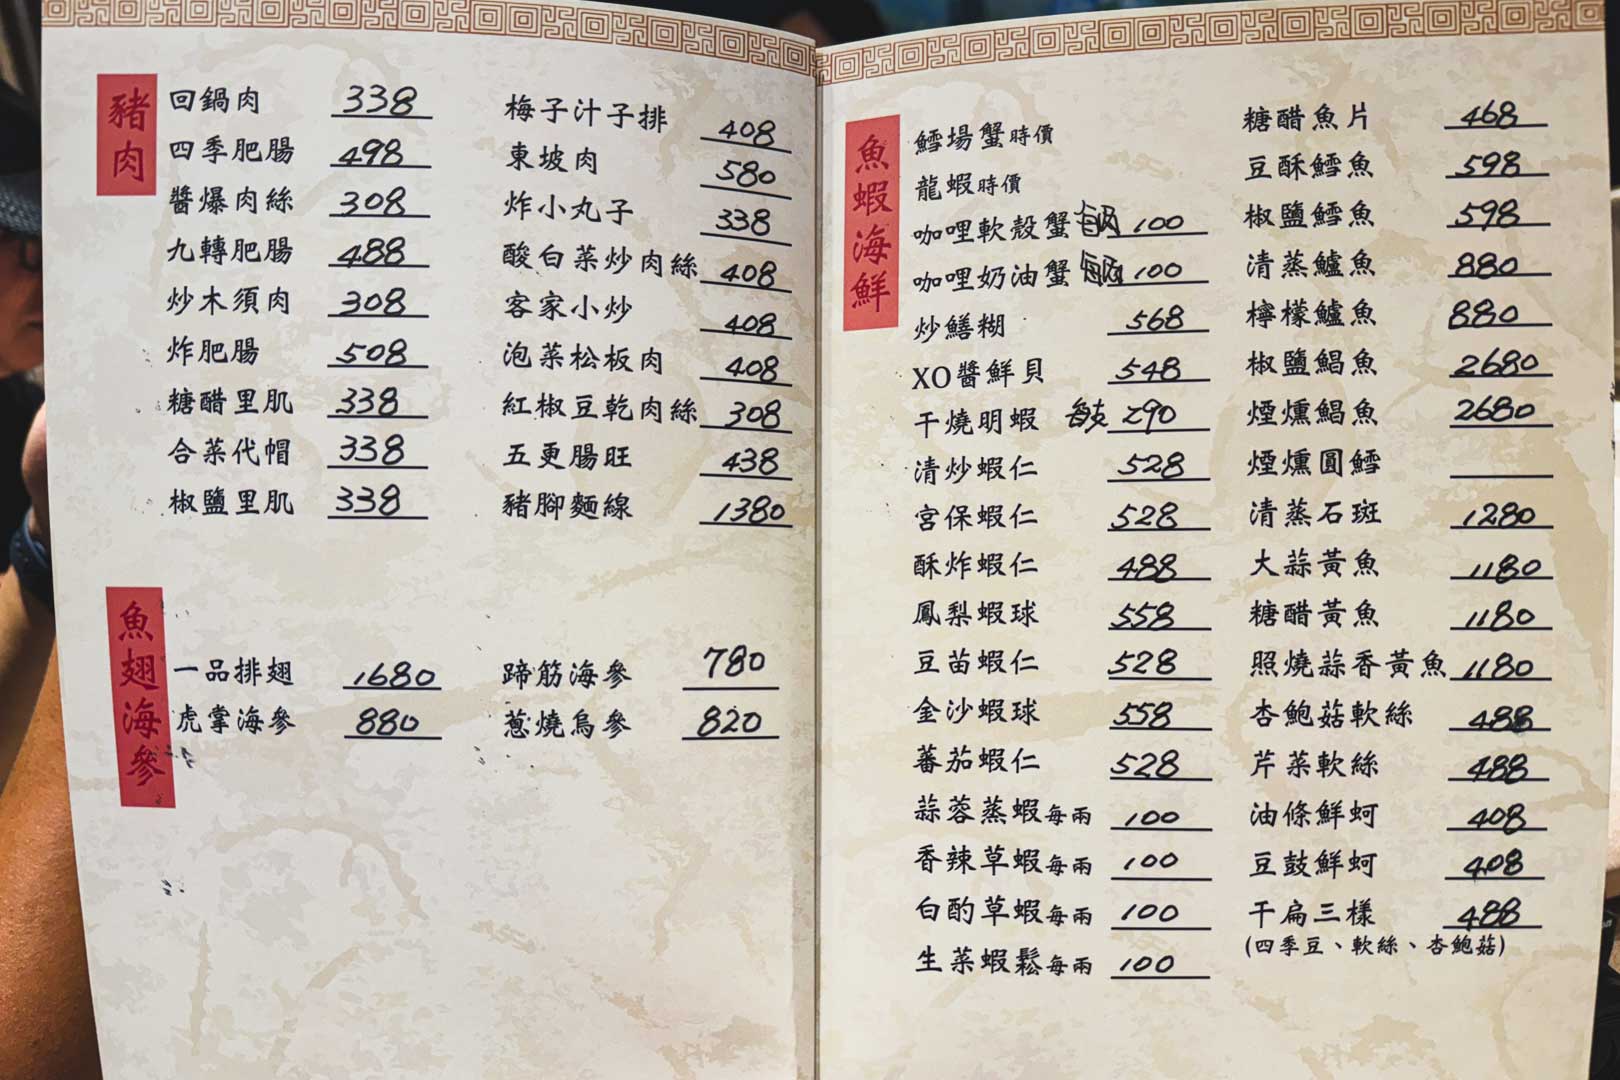 豬肉
回鍋肉 338
四季肥腸 498
醬爆肉絲 308
九轉肥腸 488
炒木須肉 308
炸肥腸 508
糖醋里肌 338
合菜代帽 338
椒鹽里肌 338
梅子汁子排 408
東坡肉 580
炸小丸子 338
酸白菜炒肉絲 408
客家小炒 408
泡菜松板肉 408
紅椒豆乾肉絲 308
五更腸旺 438
豬腳麵線 1380
魚翅海參
一品排翅 1680
虎掌海參 880
蹄筋海參 780
蔥燒烏參 820
魚蝦海鮮
鱈場蟹時價
龍蝦時價
咖哩軟殼蟹 每兩 100
咖哩奶油蟹 每兩 100
炒鱔糊 568
XO醬鮮貝 548
干燒明蝦 每支 290
清炒蝦仁 528
宮保蝦仁 528
酥炸蝦仁 488
鳳梨蝦球 558
豆苗蝦仁 528
金沙蝦球 558
蕃茄蝦仁 528
蒜蓉蒸蝦每兩 100
香辣草蝦每兩 100
白酌草蝦每兩 100
生菜蝦鬆每兩 100
糖醋魚片 468
豆酥鱈魚 598
椒鹽鱈魚 598
清蒸鱸魚 880
檸檬鱸魚 880
椒鹽鯧魚 2680
煙燻鯧魚 2680
煙燻圓鱈
清蒸石斑 1280
大蒜黃魚 1180
糖醋黃魚 1180
照燒蒜香黃魚 1180
杏鮑菇軟絲 488
芹菜軟絲 488
油條鮮蚵 408
豆鼓鮮蚵 408
干扁三樣 488
(四季豆、軟絲、杏鮑菇)